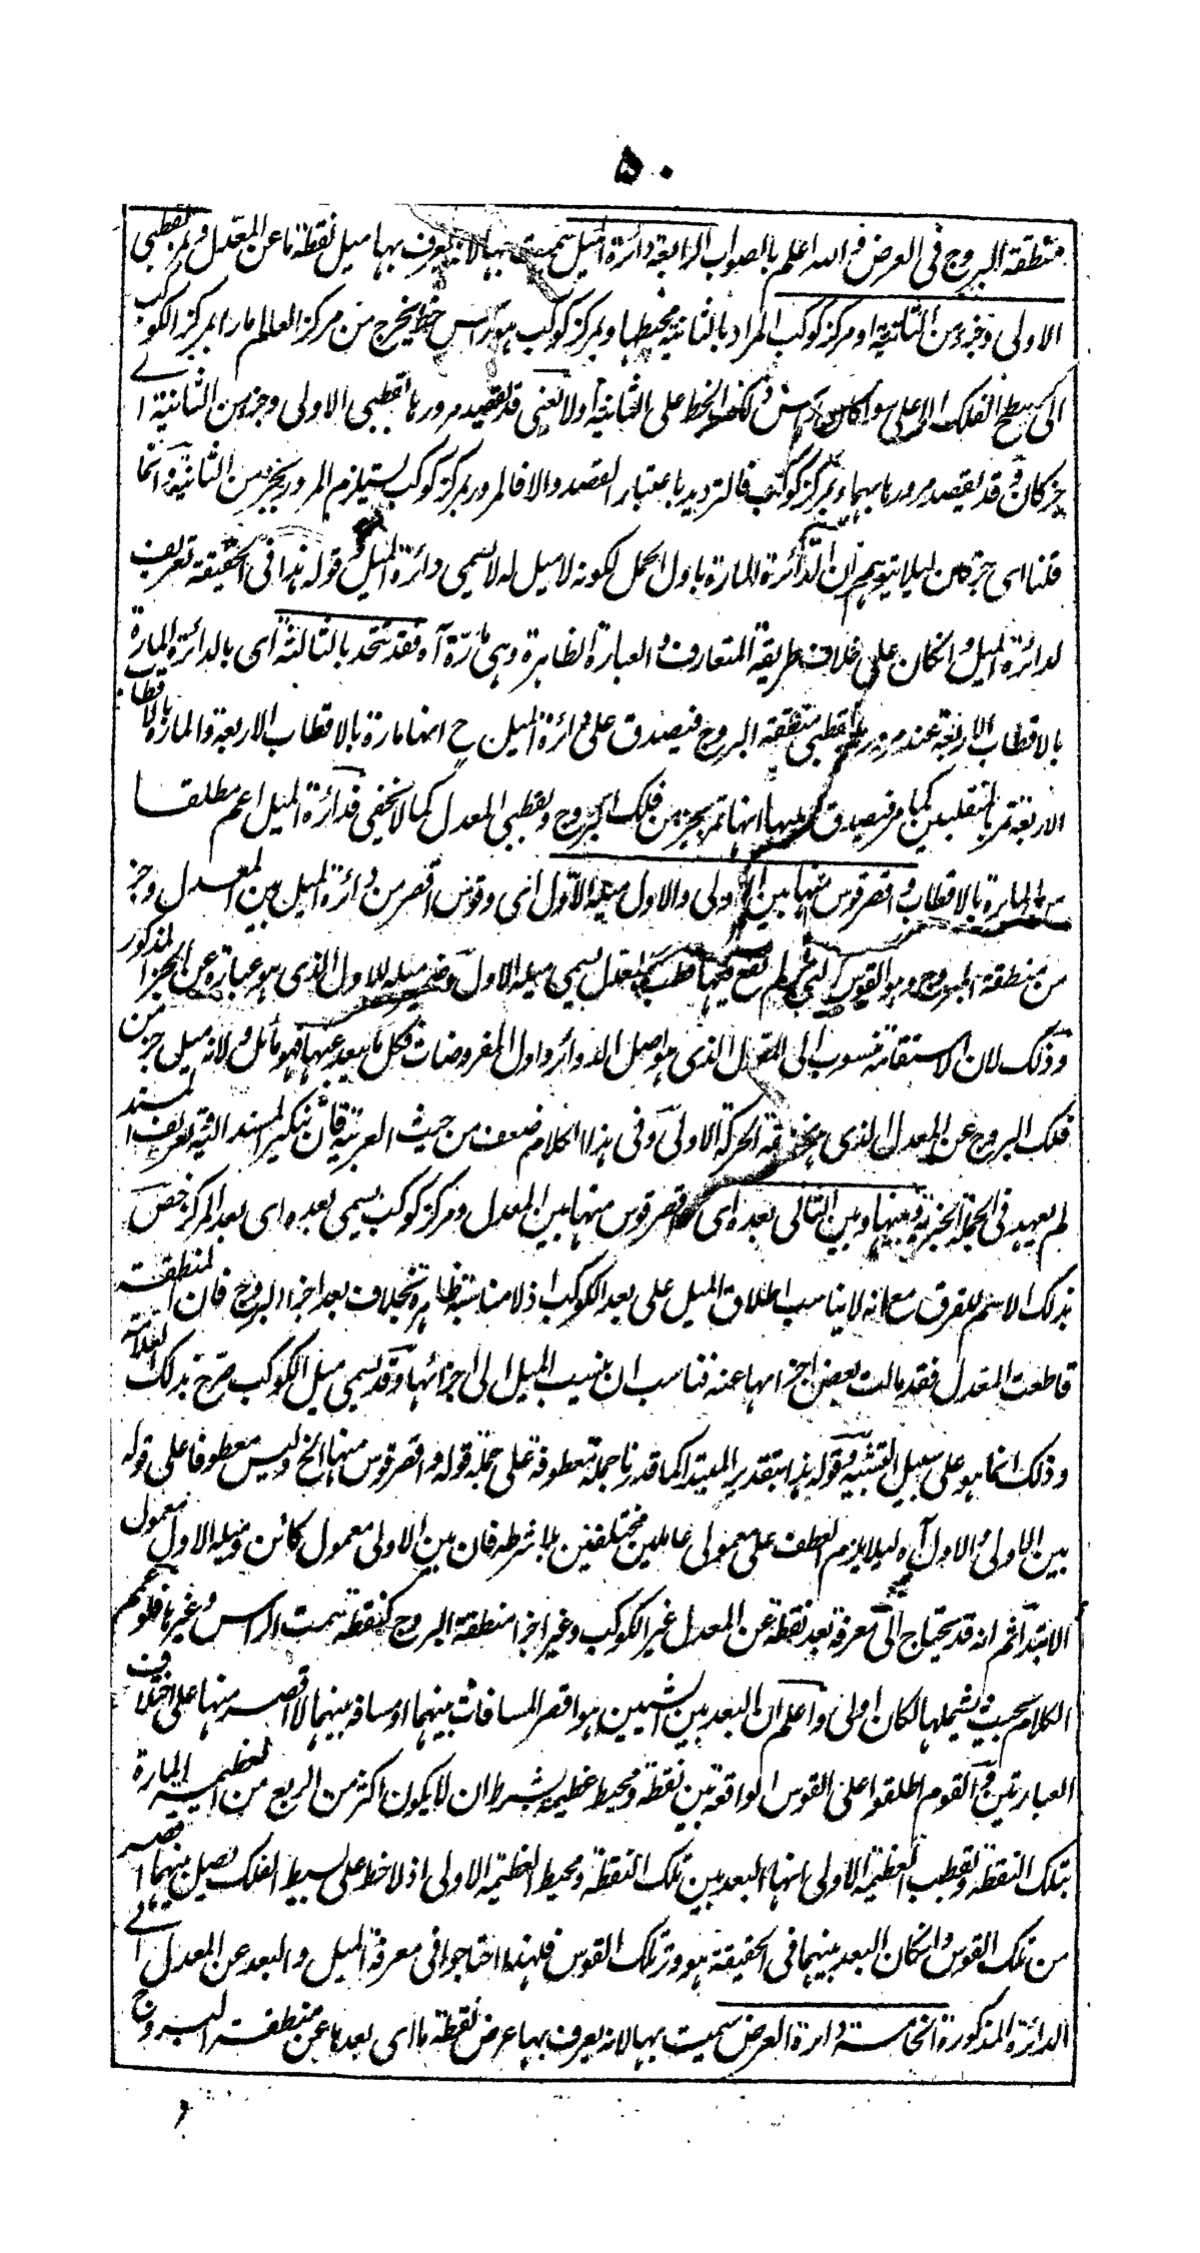 ٥٠
منطقة البروج فى العرض والله اعلم بالصواب الرابعة دائرة الميل سميت بها لانه يعرف بها ميل نقطة ما عن المعدل وتمر بقطبى
الاولى وجزء من الثانية او مركز كوكب المراد بالثانية محيطها وبمركز كوكب هو راس خط يخرج من مركز العالم مارا بمركز الكوكب
الى سطح الفلك الاعلى سواء كان الخط على الثانية او لا يعنى قد يقصد مرورها بقطبى الاولى وجزء من الثانية اى
جزء كان وقد يقصد مرورها بهما وبمركز كوكب فالترديد باعتبار القصد والا فالمرور بمركز كوكب يستلزم المرور بجزء من الثانية وانما
قلنا اى جزء كان ليلا يتوهم ان الدائرة المارة باول الحمل لكونه لا ميل له لا يسمى دائرة الميل قوله هذا فى الحقيقة تعريف
لدائرة الميل وانكان على خلاف طريقة المتعارف والعبارة الظاهرة وهى دائرة آه فقد تتحد بالثالثة اى بالدائرة المارة
بالاقطاب الاربعة عند مرورها بقطبى منطقة البروج فيصدق على دائرة الميل ح انها مارة بالاقطاب الاربعة والمارة بالاقطاب
الاربعة تمر بالمنقلبين كما مر فيصدق عليها انها تمر بجزء من فلك البروج وبقطبى المعدل كما لا يخفى فدائرة الميل اعم مطلقا
من المارة بالاقطاب واقصر قوس منها بين الاولى والاول ميله الاول اى وقوس اقصر من دائرة الميل بين المعدل وجزء
من منطقة البروج وهو القوس التى لم تقع فيها قطب المعدل يسمى ميله الاول وضمير ميله للاول الذى هو عبارة عن الجزء المذكور
وذلك لان الاستقامة منسوب الى المعدل الذى هو اصل الدوائر واول المفروضات فكل ما يبعد عنها فهو مائل ولانه ميل جزء من
فلك البروج عن المعدل الذى هو منطقة الحركة الاولى وفى هذا الكلام ضعف من حيث العربية فان تنكير المسند اليه وتعريف المسند
لم يعهد فى الجملة الخبرية وبينها وبين الثانى بعده اى اقصر قوس منها بين المعدل ومركز كوكب يسمى بعده اى بعد المركز خص
بذلك الاسم للفرق مع انه لا يناسب اطلاق الميل على بعد الكوكب اذ لا مناسبة ظاهرة بخلاف بعد اجزاء البروج فان المنطقة
قاطعت المعدل فقد مالت بعض اجزائها عنه فناسب ان ينسب الميل الى اجزائها وقد يسمى ميل الكوكب صرح بذلك العلامة
وذلك انما هو على سبيل التشبيه وقوله هذا بتقدير المبتدا كما قدرنا جملة معطوفة على جملة قوله واقصر قوس منها الخ وليس معطوفا على قوله
بين الاولى والاول آه ليلا يلزم العطف على معمولى عاملين مختلفين بلا شرطه فان بين الاولى معمول كائن وميله الاول معمول
الابتداء ثم انه قد يحتاج الى معرفة بعد نقطة عن المعدل غير الكوكب وغير اجزاء منطقة البروج كنقطة سمت الراس وغيرها فلو عمم
الكلام بحيث يشملها لكان اولى واعلم ان البعد بين الشيئين هو اقصر المسافات بينهما او مسافة بينهما لا اقصر منها على اختلاف
العبارتين والقوم اطلقوا على القوس الواقعة بين نقطة ومحيط عظيمة بشرط ان لا يكون اكثر من الربع من العظيمة المارة
بتلك النقطة وبقطب العظيمة الاولى انها البعد بين تلك النقطة ومحيط العظيمة الاولى اذ لا خط على بسيط الفلك يصل بينهما اقصر
من تلك القوس وانكان البعد بينهما فى الحقيقة هو وتر تلك القوس فلهذا احتاجوا فى معرفة الميل والبعد عن المعدل الى
الدائرة المذكورة الخامسة دائرة العرض سميت بها لانه يعرف بها عرض نقطة ما اى بعدها عن منطقة البروج